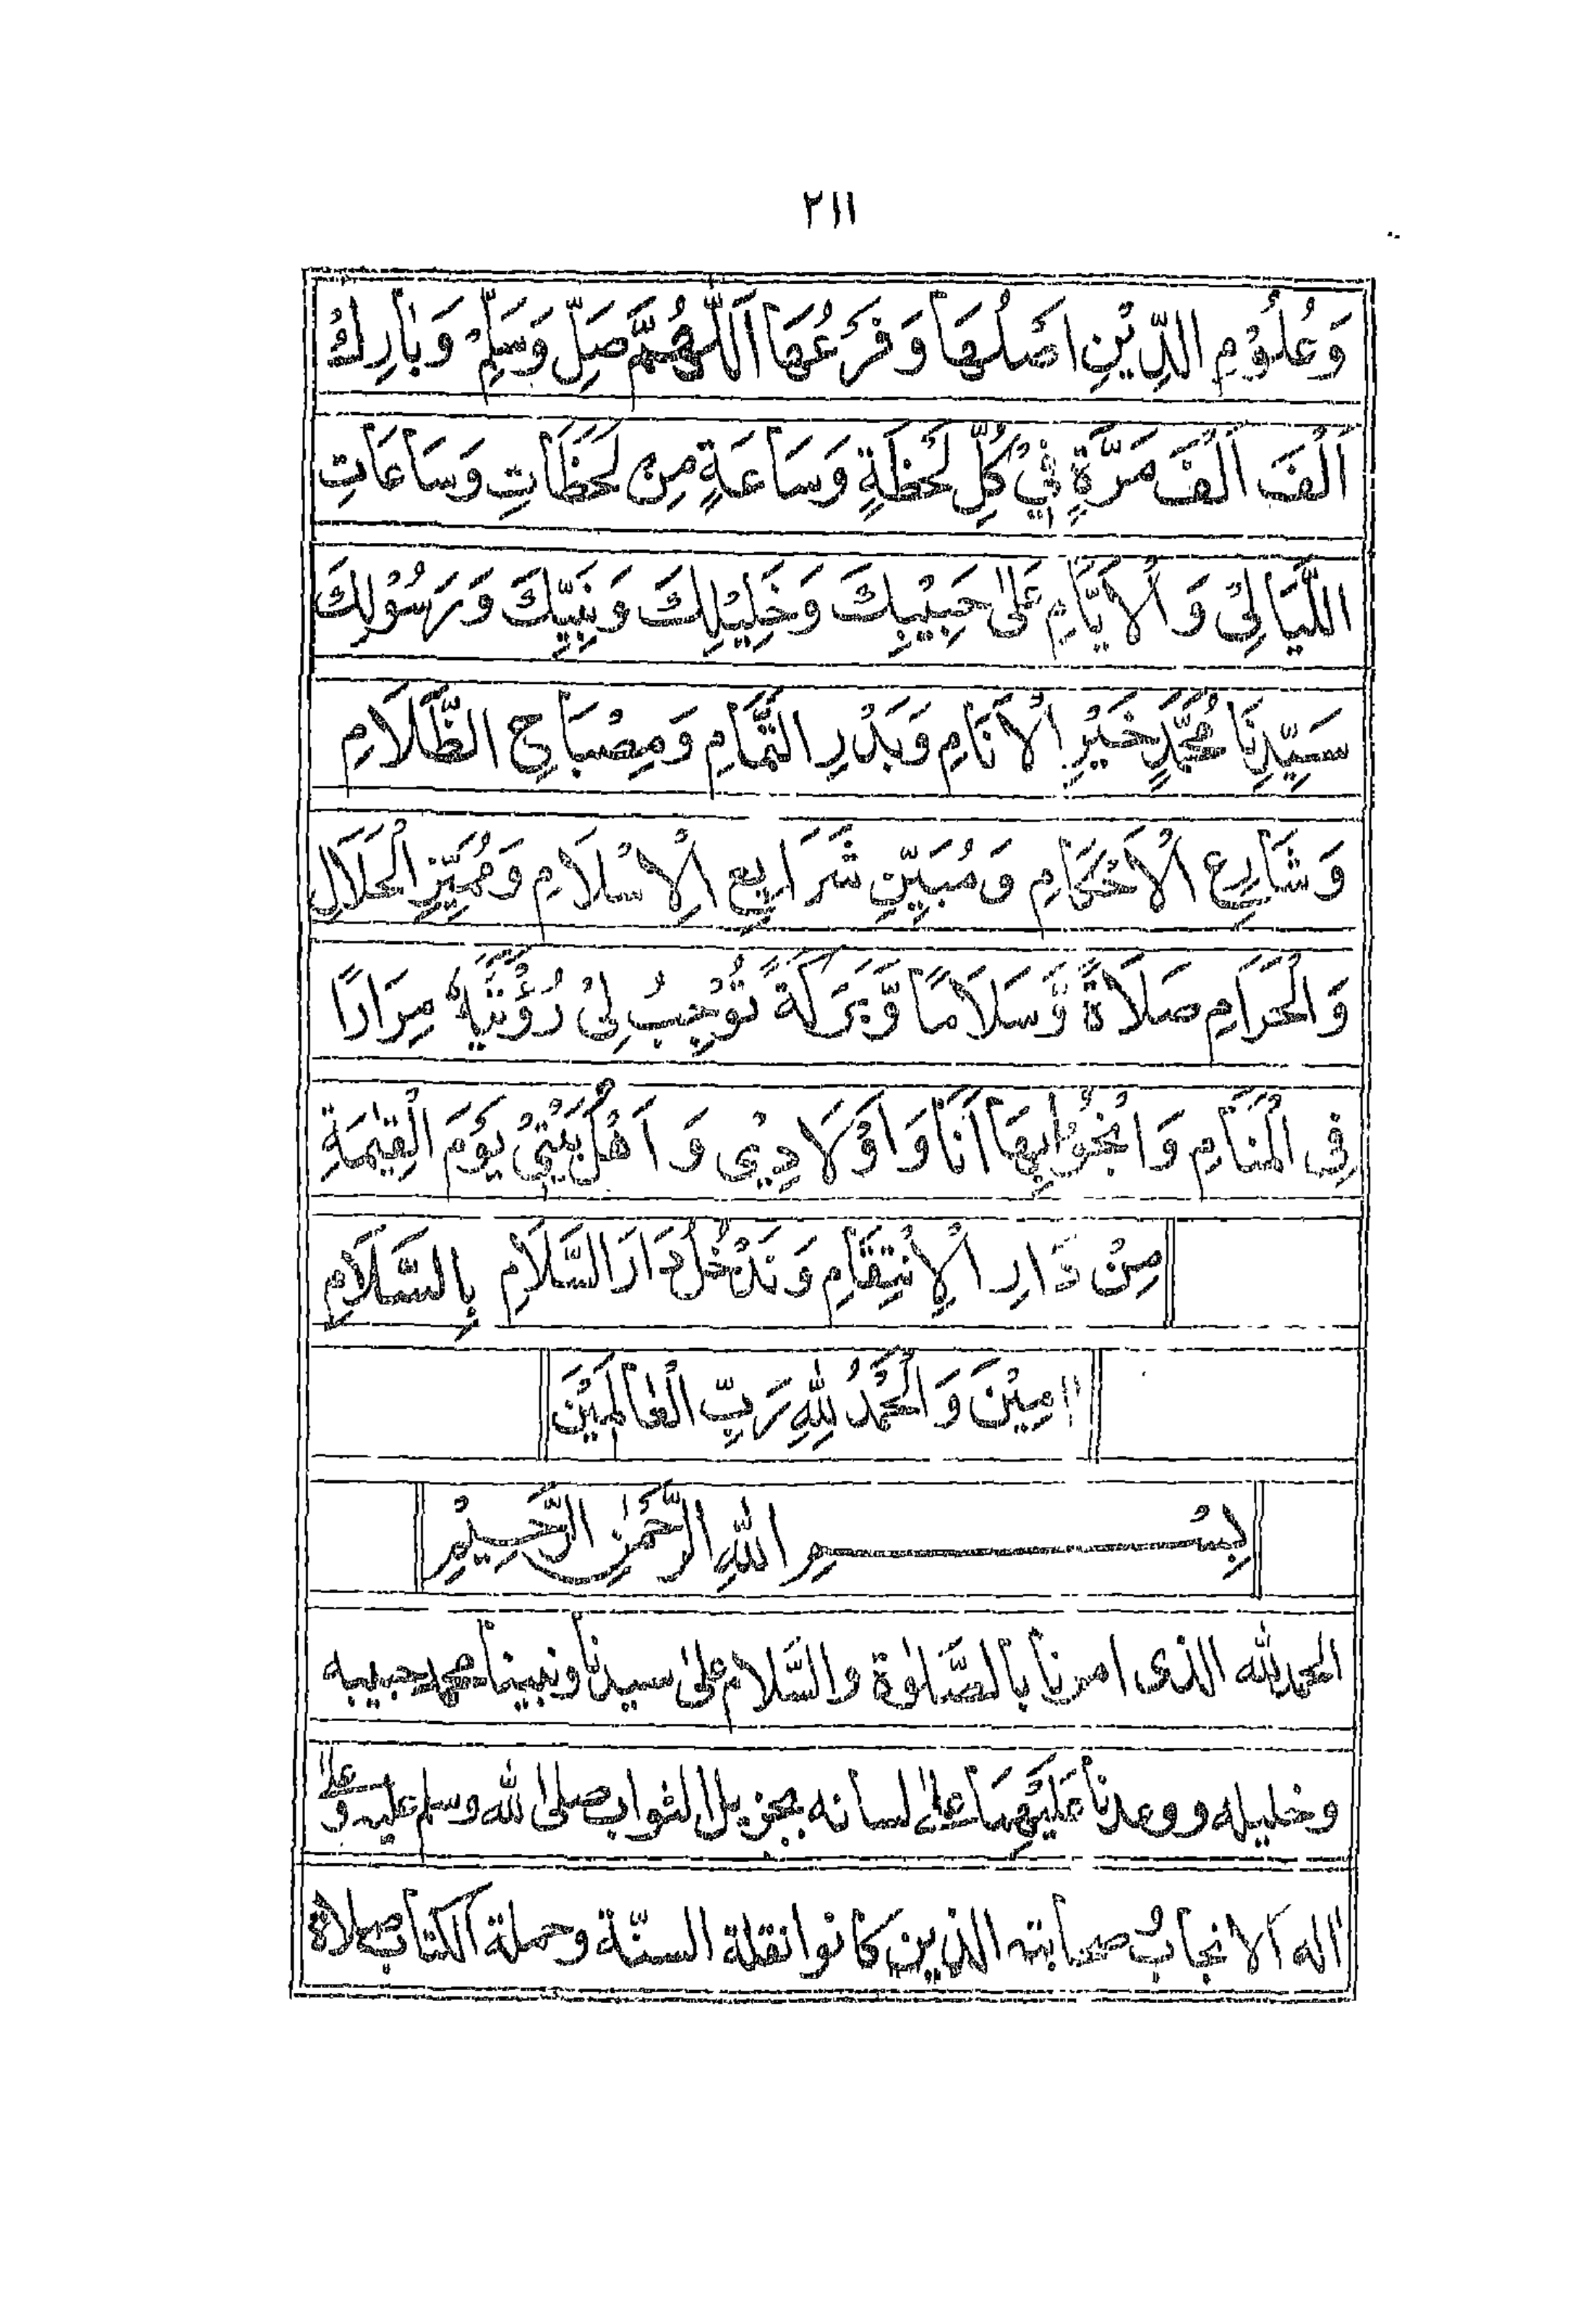 ٢١١
وَعُلُوْمِ الدِّيْنِ اَصْلُهَا وَفَرْعُهَا اَللّٰهُمَّ صَلِّ وَسَلِّمْ وَبَارِكْ
اَلْفَ اَلْفَ مَرَّةٍ فِيْ كُلِّ لَحْظَةٍ وَسَاعَةٍ مِنْ لَحَظَاتِ وَسَاعَاتِ
اللَّيَالِيْ وَالْاَيَّامِ عَلٰى حَبِيْبِكَ وَخَلِيْلِكَ وَنَبِيِّكَ وَرَسُوْلِكَ
سَيِّدِنَا مُحَمَّدٍ خَيْرِ الْاَنَامِ وَبَدْرِ التَّمَامِ وَمِصْبَاحِ الظَّلَامِ
وَشَارِعِ الْاَحْكَامِ وَمُبَيِّنِ شَرَايِعِ الْاِسْلَامِ وَمُمَيِّزِ الْحَلَالِ
وَالْحَرَامِ صَلَاةً وَّسَلَامًا وَّبَرَكَةً تُوْجِبُ لِيْ رُؤْيَتَهٗ مِرَارًا
فِى الْمَنَامِ وَاَنْجُوْ بِهَا اَنَا وَاَوْلَادِيْ وَاَهْلُ بَيْتِيْ يَوْمَ الْقِيٰمَةِ
مِنْ دَارِ الْاِنْتِقَامِ وَنَدْخُلُ دَارَ السَّلَامِ بِالسَّلَامِ
اٰمِيْنَ وَالْحَمْدُ لِلّٰهِ رَبِّ الْعَالَمِيْنَ
بِسْمِ اللّٰهِ الرَّحْمٰنِ الرَّحِيْمِ
الحمد لله الذى امرنا بالصَّلٰوة والسَّلام علىٰ سيدنا ونبينا محمد حبيبه
وخليله ووعدنا عَلَيْهِمَا علىٰ لسانه بجزيل الثواب صلى الله وسلم عليه وعلىٰ
اٰله الانجاب وصحابته الذين كانوا نقلة السنّة وحملة الكتاب صلاة